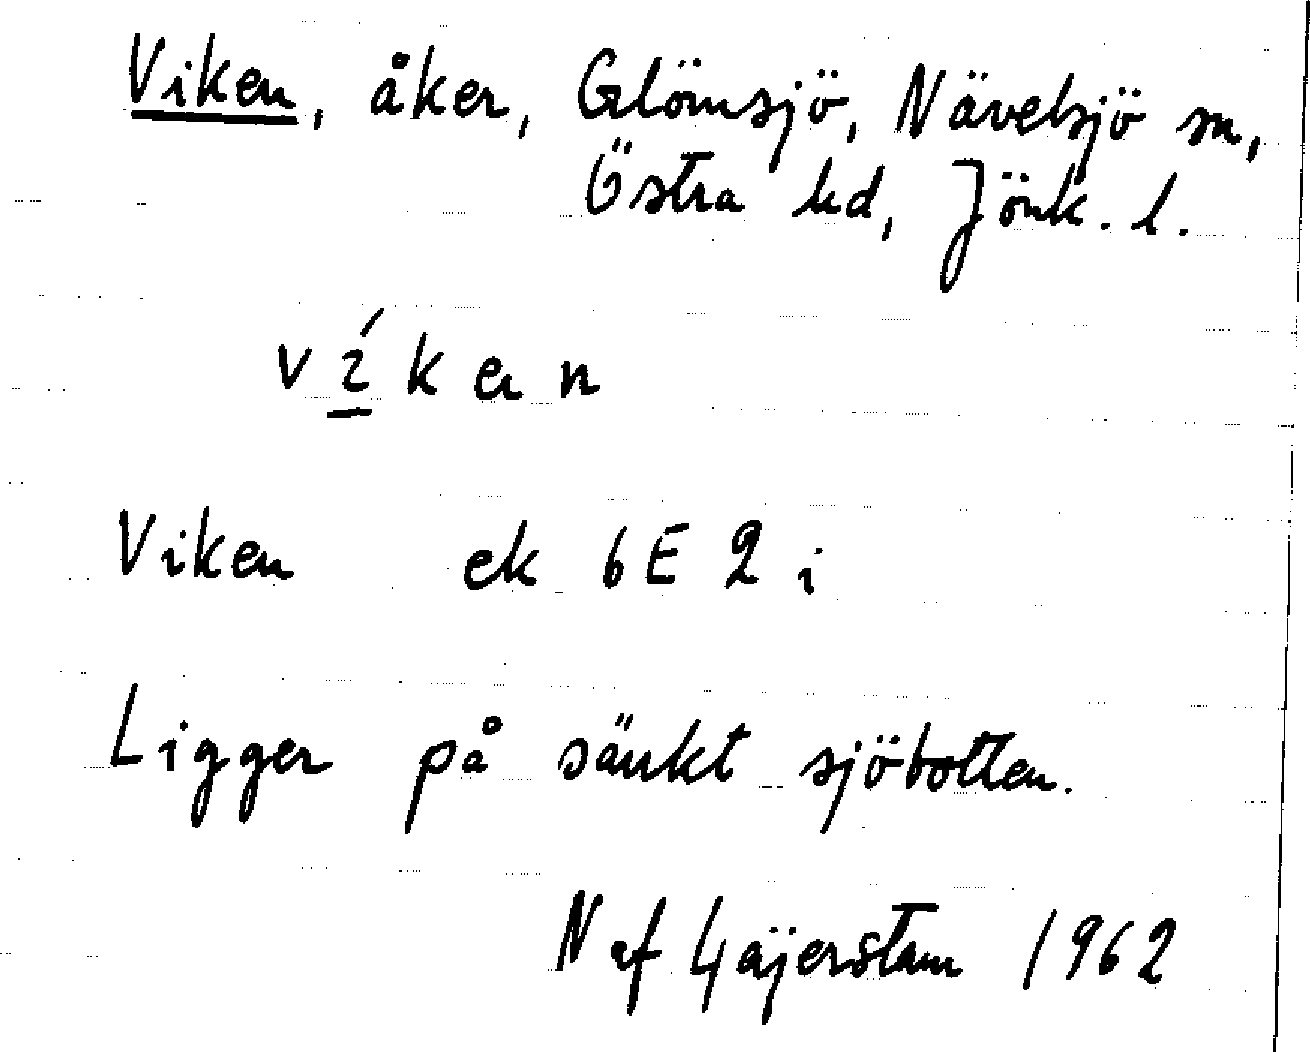 Viken, åker, Glömsjö, Nävelsjö sn,
Östra hd, Jönk. l.
víken
Viken ek 6E 2 i
Ligger på sänkt sjöbotten.
N af Gäjerstam 1962